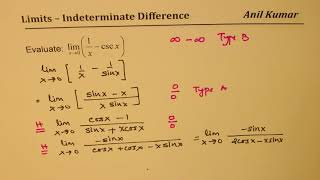 Limits – Indeterminate Difference Anil Kumar
Evaluate: lim x→0 (1/x − csc x) ∞ − ∞ Type B
= lim x→0 [1/x − 1/sinx]
= lim x→0 [(sinx − x)/(x sinx)] 0/0 Type A
H= lim x→0 (cosx − 1)/(sinx + xcosx) 0/0
H= lim x→0 (−sinx)/(cosx + cosx − xsinx) = lim x→0 (−sinx)/(2cosx − xsinx)